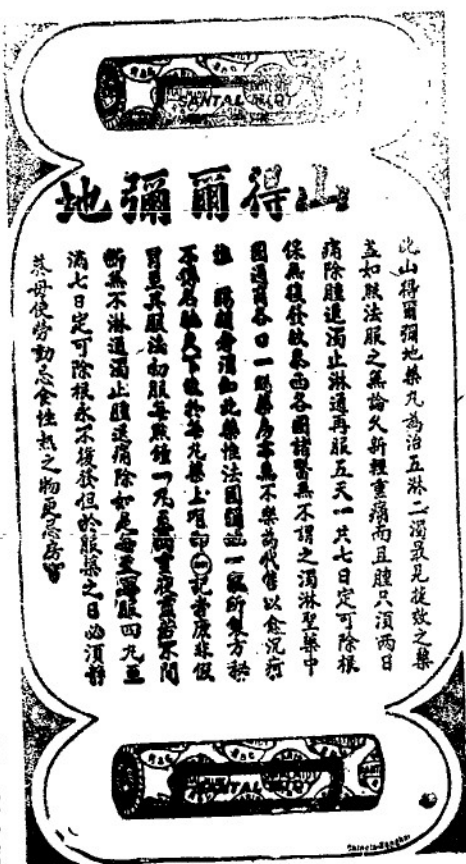 SANTAL MIDY
山得爾彌地
此山得爾彌地藥丸為治五淋二濁最見捷效之藥
蓋如照法服之無論久新輕重痛而且腫只須兩日
痛除腫退濁止淋通再服五天一共七日定可除根
保無復發故泰西各國諸醫無不謂之濁淋聖藥中
國通商各口一既藥房亦無不樂為代售以愈沉疴
法國彌地一家所製方秘
不得名馳天下於每丸藥上 印 記者庶非假
其服法初服每點鐘一丸 不間
斷無不淋通濁止腫退痛除如是每天 服四丸至
滿七日定可除根永不復發但於服藥之日必須靜
養毋使勞動忌食性熱之物更忌房
SANTAL MIDY